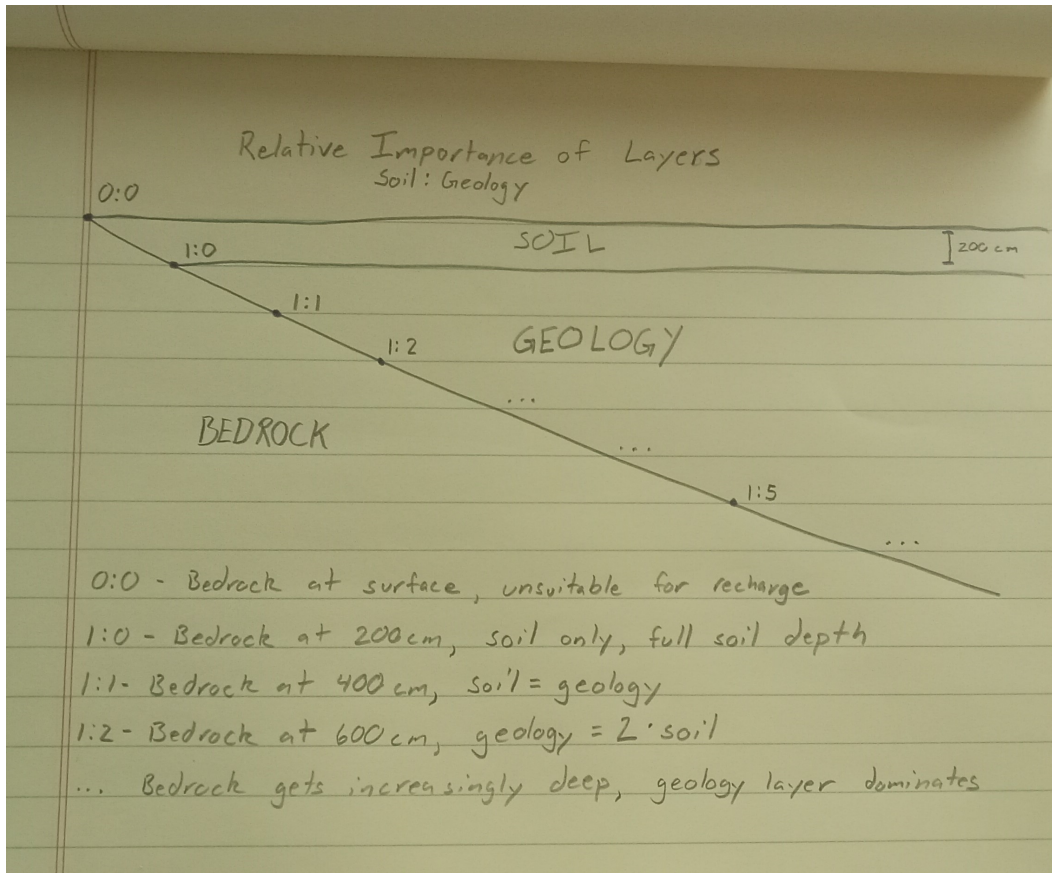 Relative Importance of Layers
Soil: Geology
0:0
SOIL
200 cm
1:0
1:1
GEOLOGY
1:2
...
BEDROCK
...
1:5
...
0:0 - Bedrock at surface, unsuitable for recharge
1:0 - Bedrock at 200cm, soil only, full soil depth
1:1 - Bedrock at 400cm, soil = geology
1:2 - Bedrock at 600cm, geology = 2·soil
... Bedrock gets increasingly deep, geology layer dominates